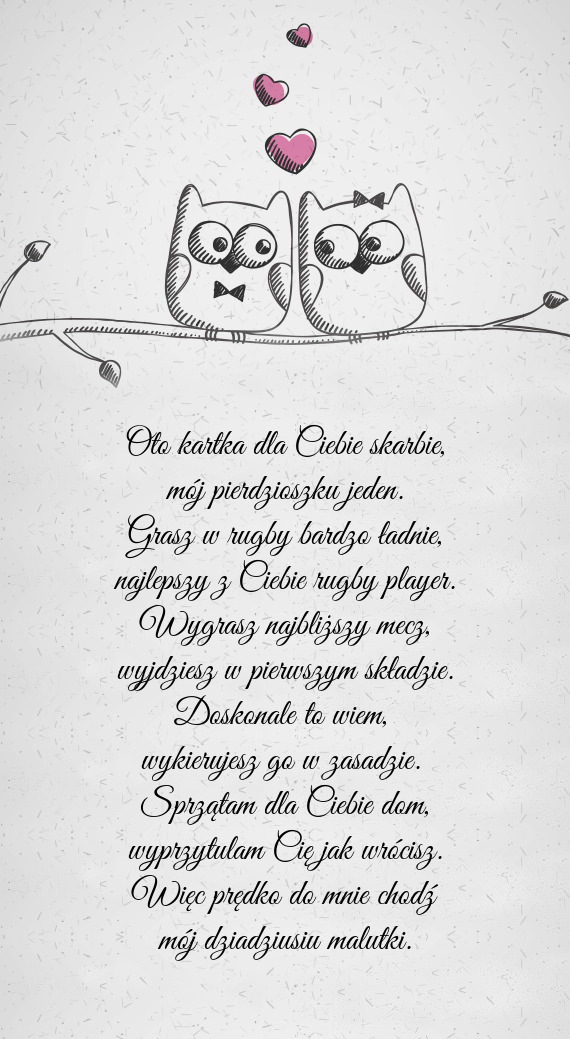 Oto kartka dla Ciebie skarbie,
mój pierdzioszku jeden.
Grasz w rugby bardzo ładnie,
najlepszy z Ciebie rugby player.
Wygrasz najbliższy mecz,
wyjdziesz w pierwszym składzie.
Doskonale to wiem,
wykierujesz go w zasadzie.
Sprzątam dla Ciebie dom,
wyprzytulam Cię jak wrócisz.
Więc prędko do mnie chodź
mój dziadziusiu malutki.